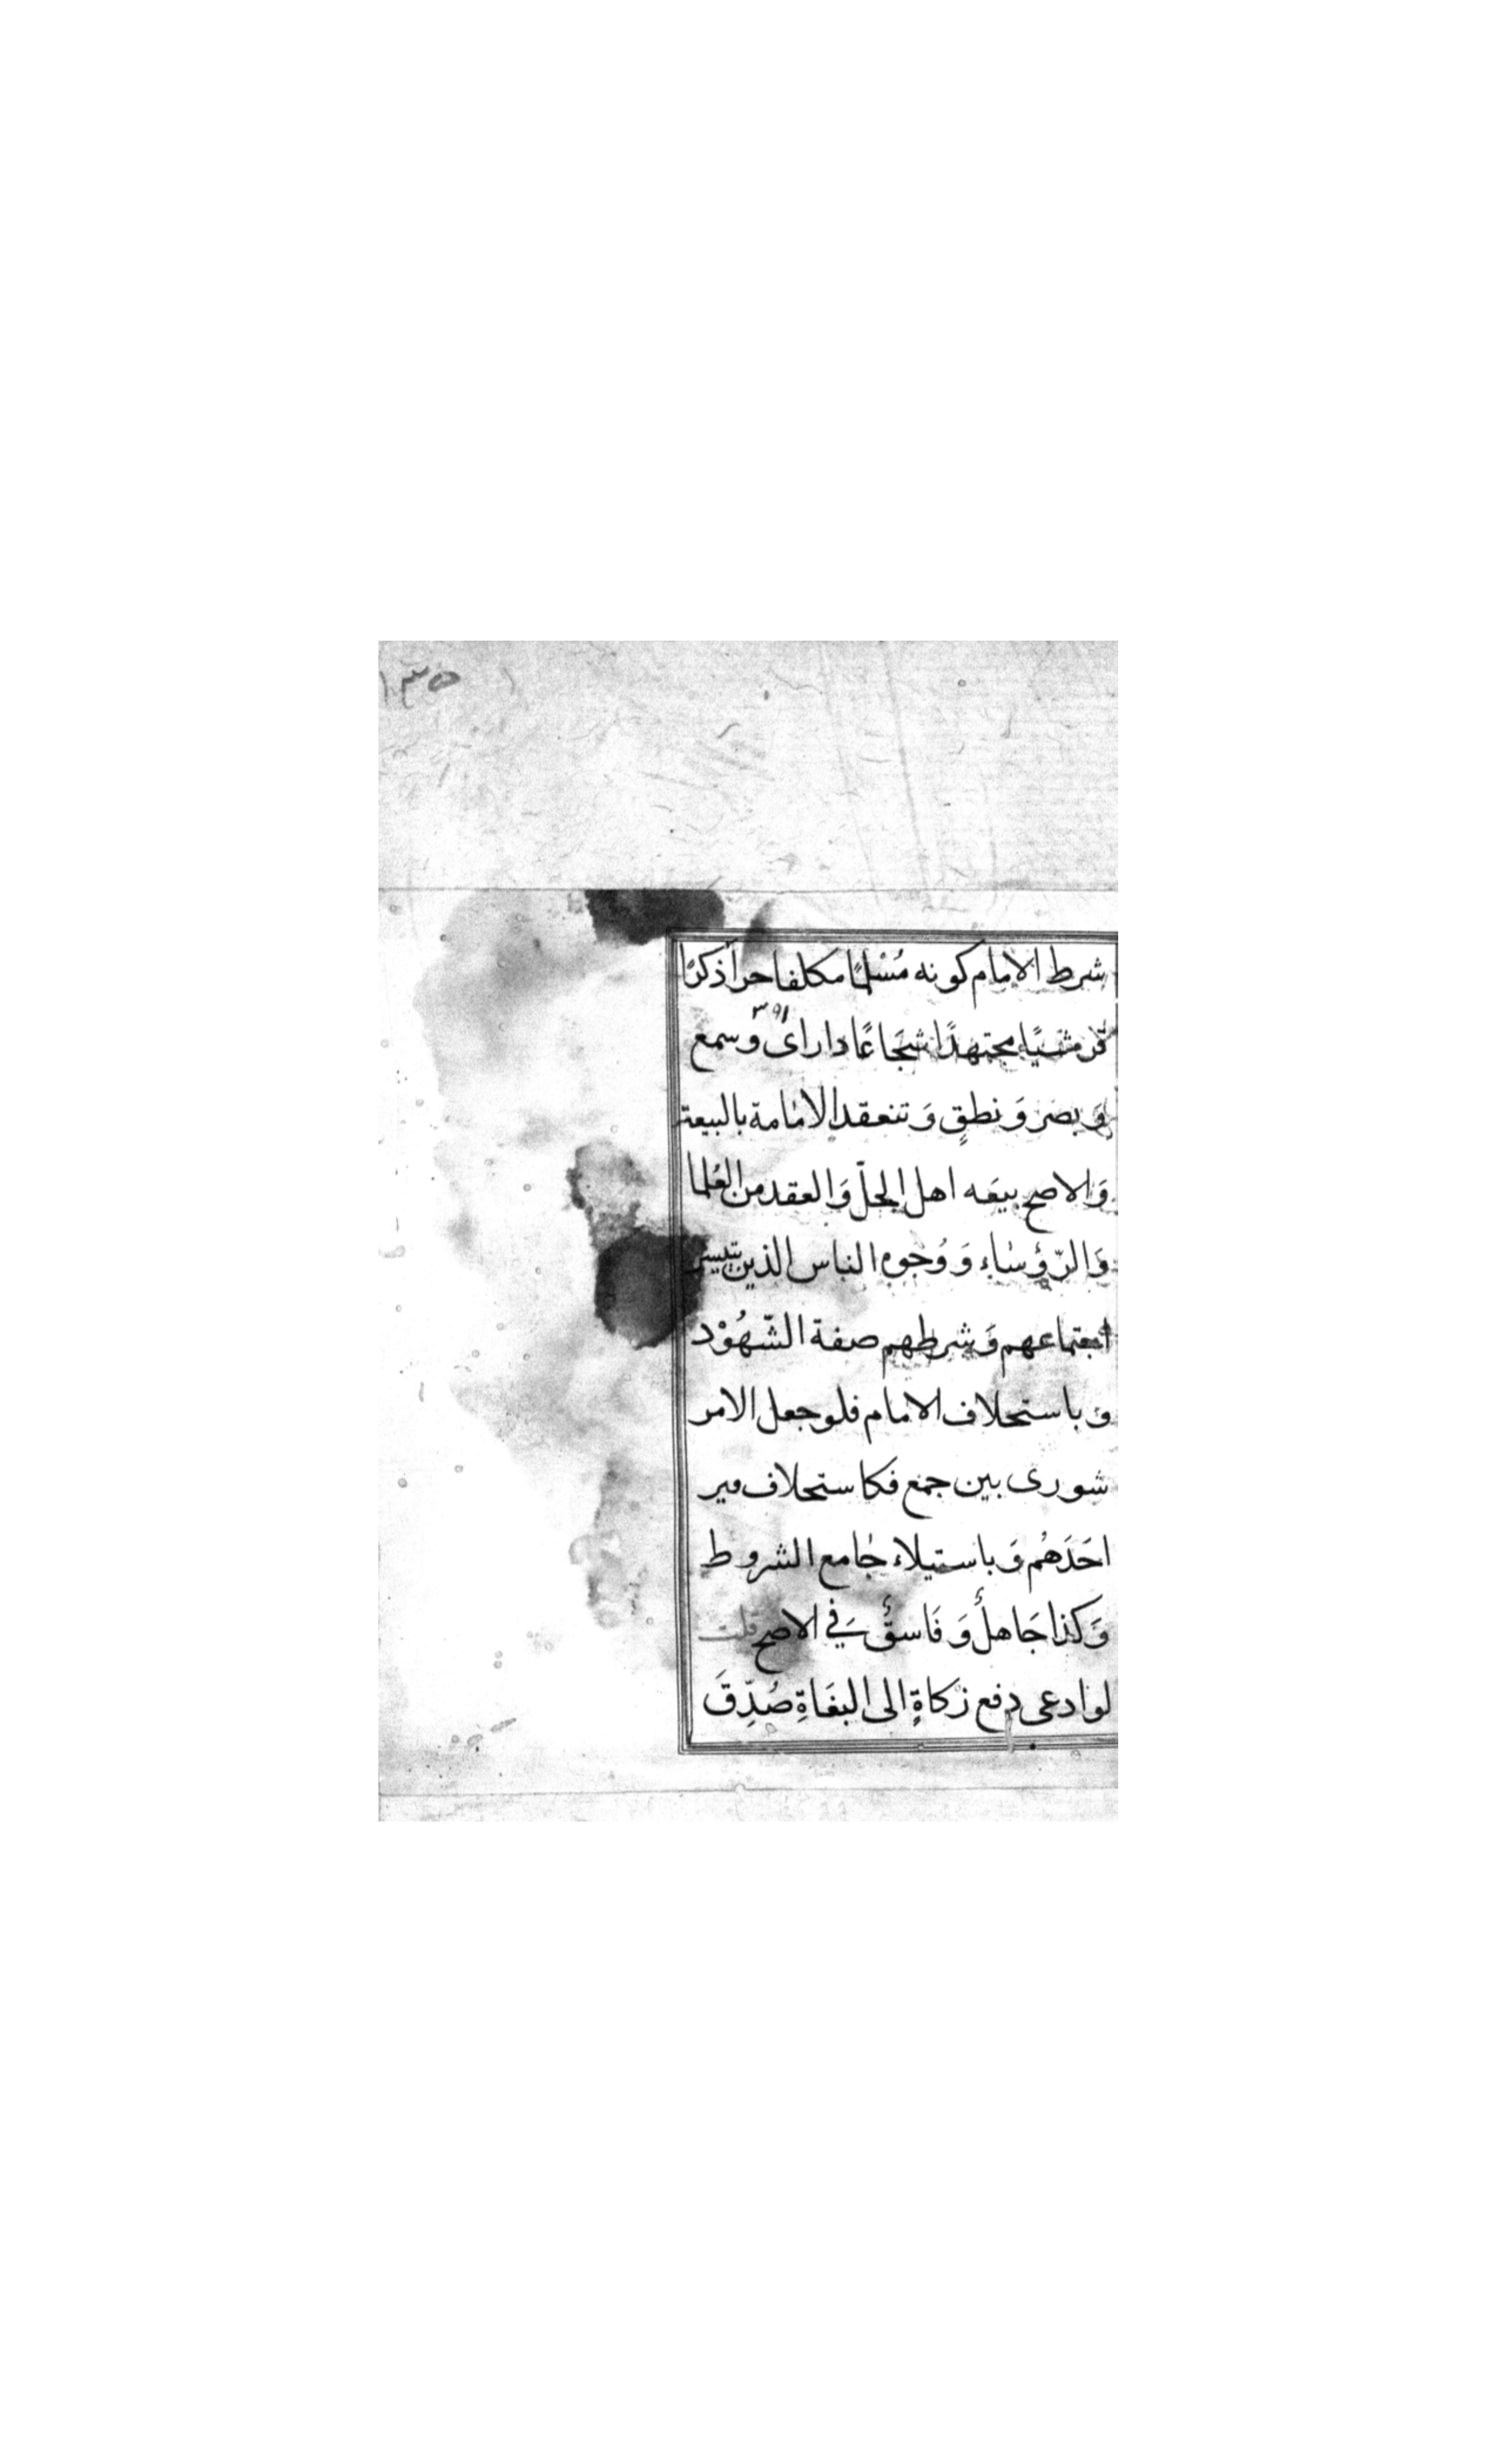 ١٣٥
شرط الامام كونه مُسْلمًا مكلفا حراً ذكرًا
قرشيًا مجتهدًا شجَاعًا ذا راى وسمع
٣٩١
وَ بصر وَ نطقٍ وَ تنعقد الامامة بالبيعة
وَالاصح بيعَه اهل الحلّ وَالعقد من العُلما
وَالرّؤسَاء وَ وُجوه الناس الذين يتيسر
اجتماعهم وَ شرطهم صفة الشّهُوْد
وَ باستخلاف الامام فلو جعل الامر
شورى بين جمْع فكاستخلاف فير
احَدَهُم وَ باستيلاء جَامع الشروط
وَ كذا جَاهلٌ وَ فَاسقٌ فَي الاصح قلت
لو ادعى دفع زكاةٍ الى البغَاةِ صُدِّقَ